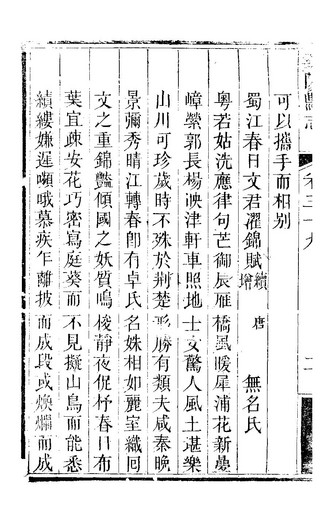 可以攜手而相别
蜀江春日文君濯錦賦 續增 唐 無名氏
粵若姑洗應律句芒御辰雁橋風暖星浦花新疊
嶂縈郭長楊映津軒車照地士文驚人風土堪樂
山川可珍歲時不殊於荆楚形勝有類夫咸秦晚
景彌秀晴江轉春卽有卓氏名姝相如麗室織囘
文之重錦豔傾國之妖質鳴梭靜夜促杼春日布
葉宜疎安花巧密寫庭葵而不見擬山鳥而能悉
績縷嫌遲嚬哦慕疾乍離披而成段或煥爛而成